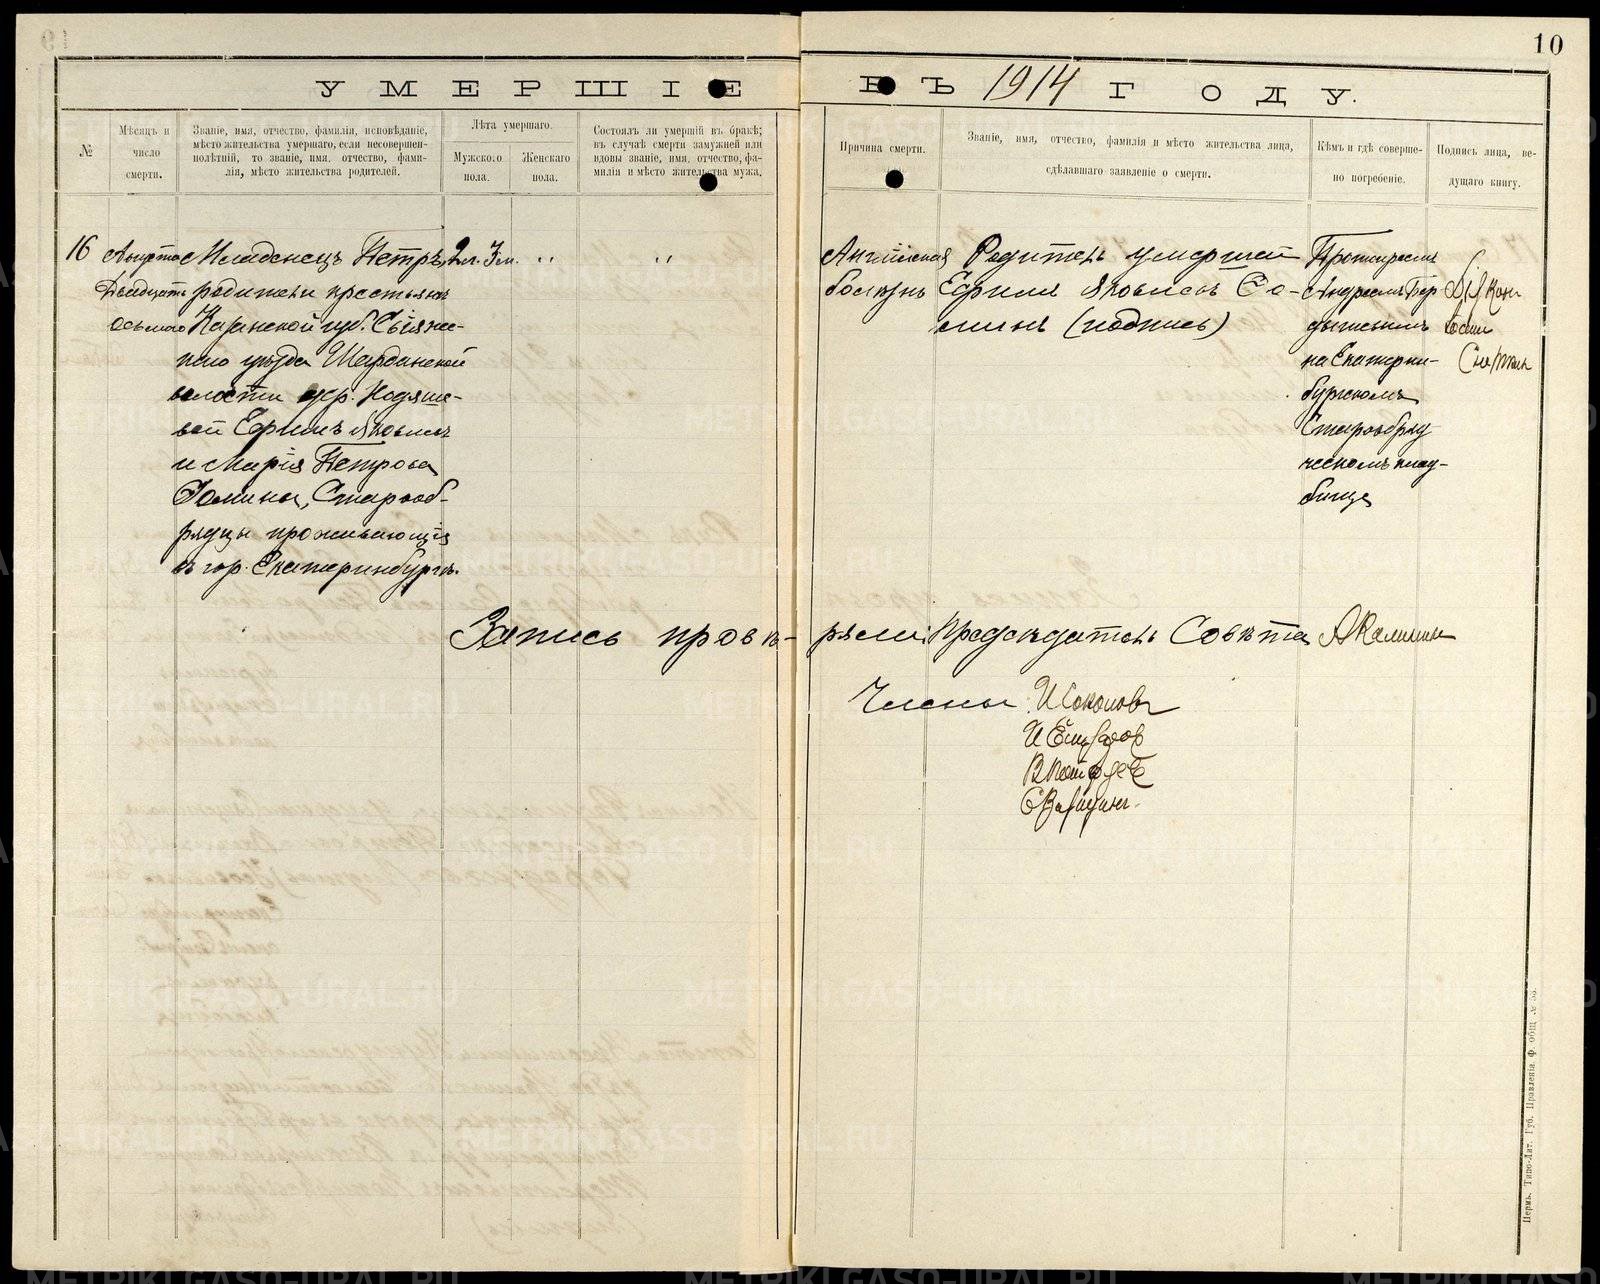 10
УМЕРШІЕ ВЪ 1914 ГОДУ.
№
Мѣсяцъ и
число
смерти.
Званіе, имя, отчество, фамилія, исповѣданіе,
мѣсто жительства умершаго, если несовершен-
нолѣтній, то званіе, имя, отчество, фами-
лія, мѣсто жительства родителей.
Лѣта умершаго.
Мужского
пола.
Женскаго
пола.
Состоялъ ли умершій въ бракѣ;
въ случаѣ смерти замужней или
вдовы званіе, имя, отчество, фа-
милія и мѣсто жительства мужа.
Причина смерти.
Званіе, имя, отчество, фамилія и мѣсто жительства лица,
сдѣлавшаго заявленіе о смерти.
Кѣмъ и гдѣ соверше-
но погребеніе.
Подпись лица, ве-
дущаго книгу.
16
Августа
Двадцать
осьмого
Младенецъ Петръ,
родители крестьяне
Казанской губ. Свіяж-
скаго уѣзда
волости дер.
вой Ефимъ Яковлевъ
и Марія Петрова
Фомины, Старооб-
рядцы проживающіе
въ гор. Екатеринбургѣ.
2 л. 3 м.
"
"
Англійская
болѣзнь
Родитель умершей
Ефимъ Яковлевъ Фо-
минъ (подпись)
Протоіереем
Андреемъ
на Екатерин-
бургскомъ
Старообряд-
ческомъ клад-
бище
Діякон
Запись провѣ-
ряли: Предсѣдатель Совѣта АКалинин
Члены: ИСоколовъ
METRIKI.GASO-URAL.RU
Пермь. Типо-Лит. Губ. Правленія. Ф. общ. № 33.